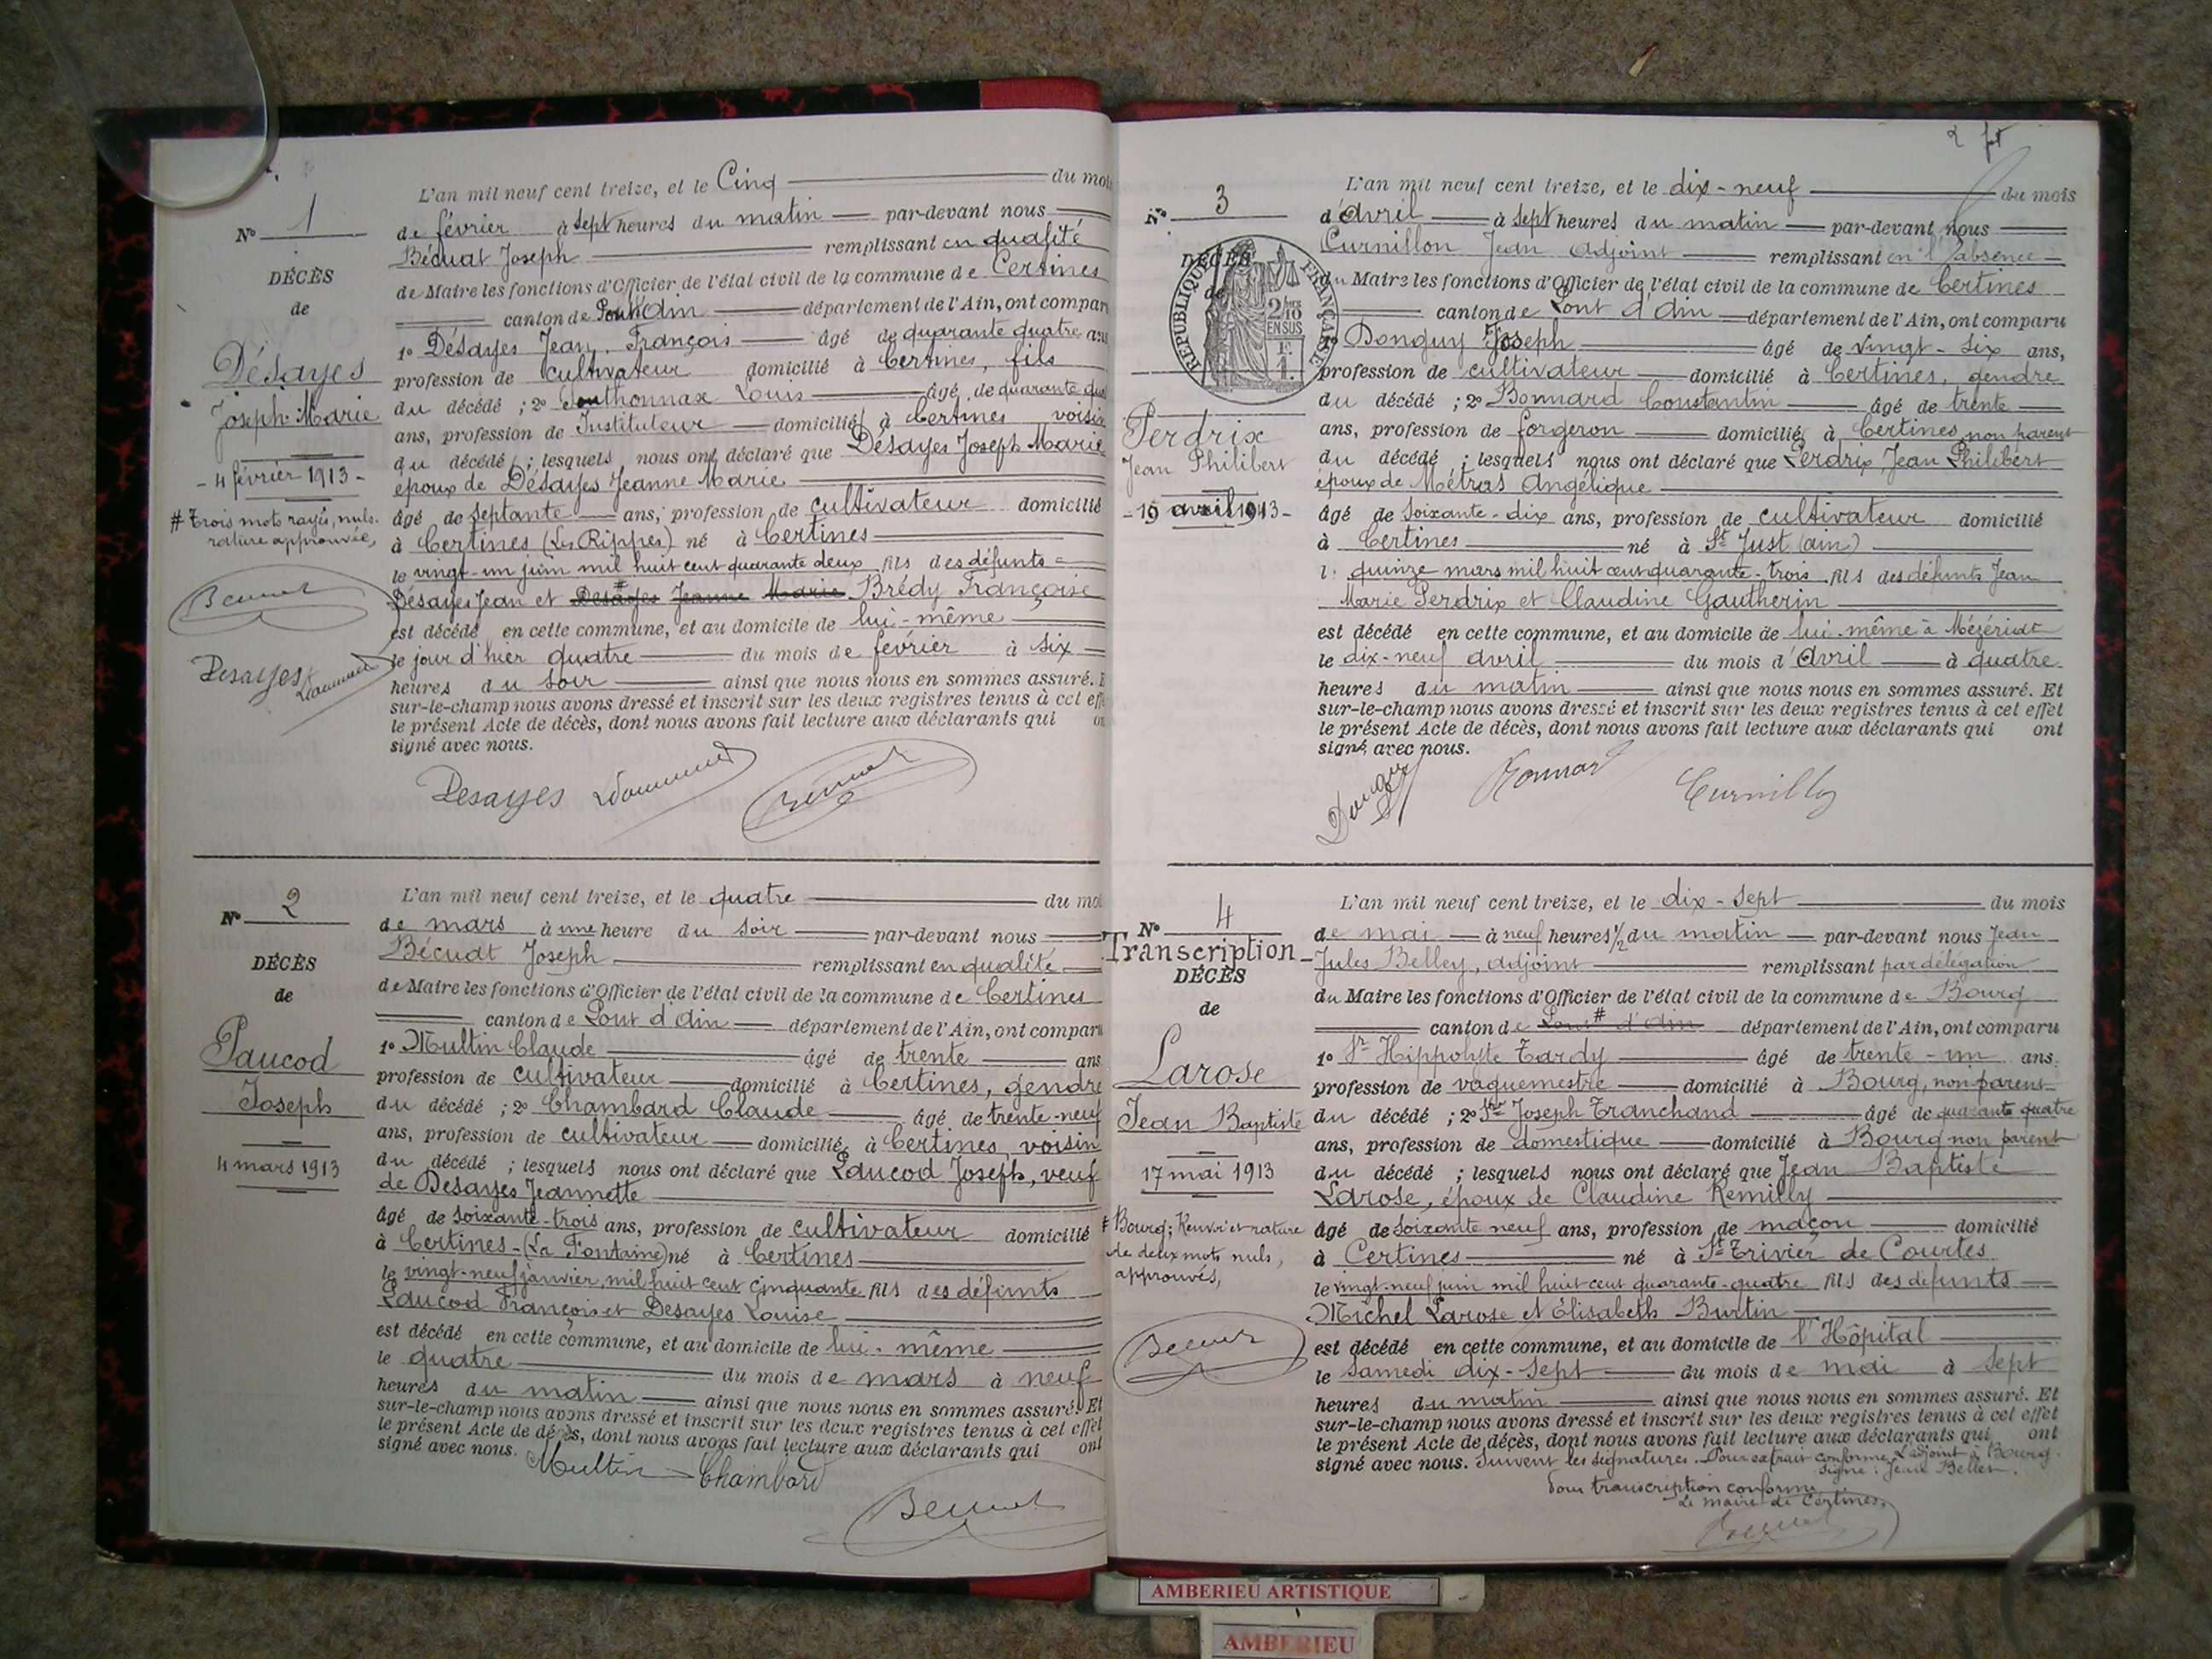 N° 1
DÉCÈS
de
Désayes
Joseph-Marie
- 4 février 1913 -
# Trois mots rayés, nuls.
rature approuvée,
Desayes
L'an mil neuf cent treize, et le Cinq du mois
de février à sept heures du matin par-devant nous
Bécuat Joseph remplissant en qualité
de Maire les fonctions d'Officier de l'état civil de la commune de Certines
canton de Pont d'Ain département de l'Ain, ont compar
1° Désayes Jean, François âgé de quarante quatre ans
profession de cultivateur domicilié à Certines, fils
du décédé ; 2° Louis âgé de quarante
ans, profession de Instituteur domicilié à Certines voisin
du décédé ; lesquels nous ont déclaré que Désayes Joseph Marie
époux de Désayes Jeanne Marie
âgé de septante ans, profession de cultivateur domicilié
à Certines (Les Rippes) né à Certines
le vingt-un juin mil huit cent quarante deux fils des défunts
Désayes Jean et Desayes Jeanne Marie # Brédy Françoise
est décédé en cette commune, et au domicile de lui-même
le jour d'hier quatre du mois de février à six
heures du soir ainsi que nous nous en sommes assuré. E
sur-le-champ nous avons dressé et inscrit sur les deux registres tenus à cet eff
le présent Acte de décès, dont nous avons fait lecture aux déclarants qui on
signé avec nous.
Desayes
N° 2
DÉCÈS
de
Paucod
Joseph
4 mars 1913
L'an mil neuf cent treize, et le quatre du moi
de mars à une heure du soir par-devant nous
Bécuat Joseph remplissant en qualité
de Maire les fonctions d'Officier de l'état civil de la commune de Certines
canton de Pont d'Ain département de l'Ain, ont comparu
1° Multin Claude âgé de trente ans
profession de cultivateur domicilié à Certines, gendre
du décédé ; 2° Chambard Claude âgé de trente-neuf
ans, profession de cultivateur domiciliés à Certines, voisin
du décédé ; lesquels nous ont déclaré que Paucod Joseph, veuf
de Desayes Jeannette
âgé de soixante-trois ans, profession de cultivateur domicilié
à Certines - (La Fontaine) né à Certines
le vingt-neuf janvier, mil huit cent cinquante fils des défunts
Paucod François et Desayes Louise
est décédé en cette commune, et au domicile de lui-même
le quatre du mois de mars à neuf
heures du matin ainsi que nous nous en sommes assuré. Et
sur-le-champ nous avons dressé et inscrit sur les deux registres tenus à cet effet
le présent Acte de décès, dont nous avons fait lecture aux déclarants qui ont
signé avec nous.
Multin Chambard
2
N° 3
DÉCÈS
de
RÉPUBLIQUE FRANÇAISE
2/10 EN SUS
Perdrix
Jean Philibert
- 19 avril 1913 -
L'an mil neuf cent treize, et le dix-neuf du mois
d'Avril à sept heures du matin par-devant nous
Curnillon Jean adjoint remplissant en l'absence
du Maire les fonctions d'Officier de l'état civil de la commune de Certines
canton de Pont d'Ain département de l'Ain, ont comparu
1° Donguy Joseph âgé de vingt-six ans,
profession de cultivateur domicilié à Certines, gendre
du décédé ; 2° Bonnard Constantin âgé de trente
ans, profession de forgeron domiciliés à Certines non parent
du décédé ; lesquels nous ont déclaré que Perdrix Jean Philibert
époux de Métras Angélique
âgé de soixante-dix ans, profession de cultivateur domicilié
à Certines né à St Just (ain)
le quinze mars mil huit cent quarante-trois fils des défunts Jean
Marie Perdrix et Claudine Gautherin
est décédé en cette commune, et au domicile de lui-même à Mézériat
le dix-neuf avril du mois d'Avril à quatre
heures du matin ainsi que nous nous en sommes assuré. Et
sur-le-champ nous avons dressé et inscrit sur les deux registres tenus à cet effet
le présent Acte de décès, dont nous avons fait lecture aux déclarants qui ont
signé avec nous.
Donguy Bonnard Curnillon
N° 4
Transcription
DÉCÈS
de
Larose
Jean Baptiste
17 mai 1913
# Bourg; Renvoi et rature
de deux mots nuls,
approuvés,
L'an mil neuf cent treize, et le dix-sept du mois
de mai à neuf heures 1/2 du matin par-devant nous Jean
Jules Belley, adjoint remplissant par délégation
du Maire les fonctions d'Officier de l'état civil de la commune de Bourg
canton de Pont # d'Ain département de l'Ain, ont comparu
1° Sr Hippolyte Tardy âgé de trente-un ans.
profession de vaguemestre domicilié à Bourg, non parent
du décédé ; 2° Sr Joseph Tranchand âgé de quarante quatre
ans, profession de domestique domicilié à Bourg non parent
du décédé ; lesquels nous ont déclaré que Jean Baptiste
Larose, époux de Claudine Remilly
âgé de soixante neuf ans, profession de maçon domicilié
à Certines né à St Trivier de Courtes
le vingt-neuf juin mil huit cent quarante-quatre fils des défunts
Michel Larose et Élisabeth Burtin
est décédé en cette commune, et au domicile de l'Hôpital
le Samedi dix-sept du mois de mai à sept
heures du matin ainsi que nous nous en sommes assuré. Et
sur-le-champ nous avons dressé et inscrit sur les deux registres tenus à cet effet
le présent Acte de décès, dont nous avons fait lecture aux déclarants qui ont
signé avec nous. Suivent les signatures. Pour extrait conforme L'adjoint à Bourg.
Signé : Jean Belley.
Pour transcription conforme
Le maire de Certines,
AMBERIEU ARTISTIQUE
AMBERIEU